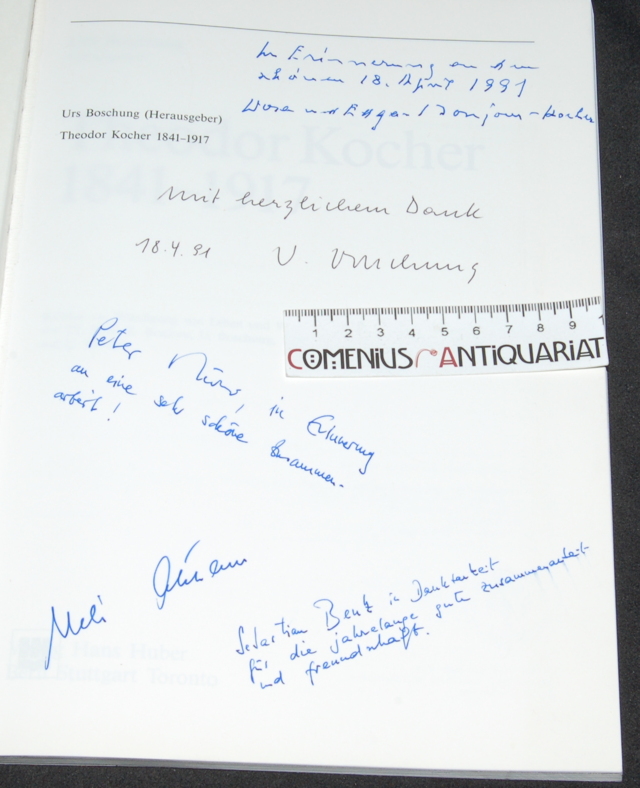 In Erinnerung an den
schönen 18. April 1991
Urs Boschung (Herausgeber)
Dora und Edgar Bonjour-Kocher
Theodor Kocher 1841–1917
Theodor Kocher
1841–1917
Mit herzlichem Dank
18.4.91 U. Boschung
1 2 3 4 5 6 7 8 9
COMENIUS ANTIQUARIAT
Peter in Erinnerung
an eine sehr schöne Zusammen-
arbeit!
Sebastian Benz in Dankbarkeit
für die jahrelange gute Zusammenarbeit
und Freundschaft.
Hans Huber
Stuttgart Toronto